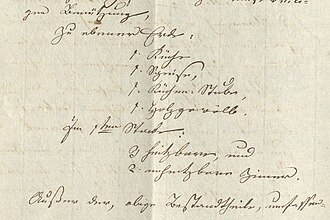 zur Benützung,
Zu ebener Erde:
1. Küche
1. Speise,
1. Kuchen-Stube,
1. Holzgewölb.
Im 1ten Stock:
3 heitzbare, und
2. unheitzbare Zimer.
Außer der, obige Bestandtheile, umfassen